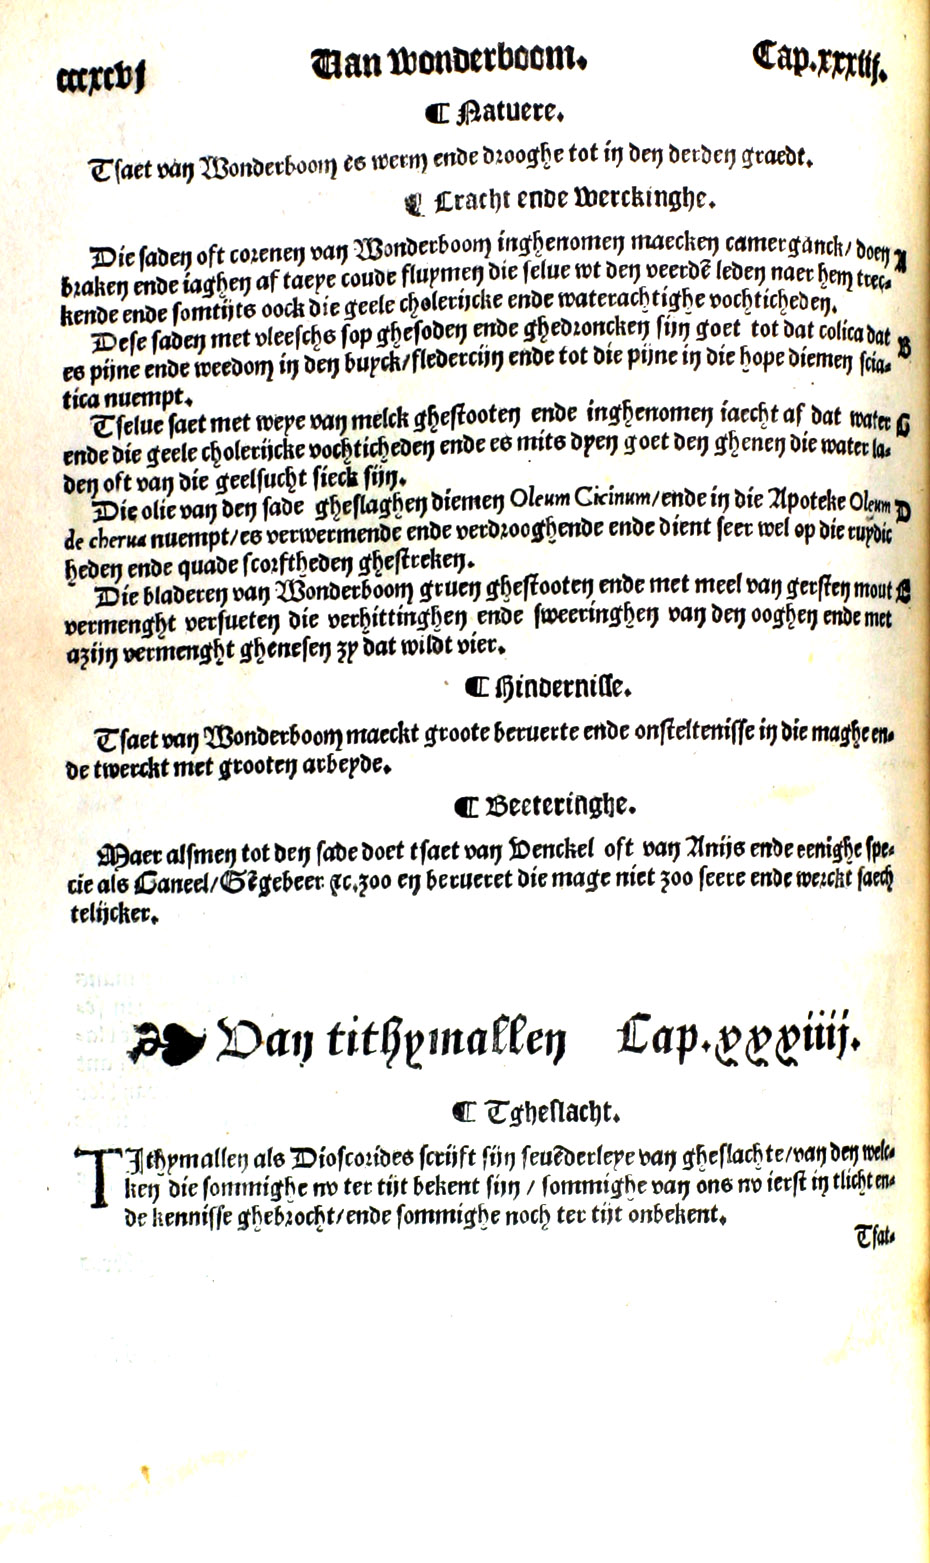 cccxcvj Van Wonderboom. Cap.xxxiij.
¶ Natuere.
Tsaet van Wonderboom es werm ende drooghe tot in den derden graedt.
¶ Cracht ende Werckinghe.
Die saden oft corenen van Wonderboom inghenomen maecken camerganck/ doen A
braken ende iaghen af taeye coude fluymen die selue wt den veerdē leden naer hem trec-
kende ende somtijts oock die geele cholerijcke ende waterachtighe vochticheden.
Dese saden met vleeschs sop ghesoden ende ghedroncken sijn goet tot dat colica dat B
es pijne ende weedom in den buyck/fledercijn ende tot die pijne in die hope diemen scia-
tica nuempt.
Tselue saet met weye van melck ghestooten ende inghenomen iaecht af dat water C
ende die geele cholerijcke vochticheden ende es mits dyen goet den ghenen die water la-
den oft van die geelsucht sieck sijn.
Die olie van den sade gheslaghen diemen Oleum Cicinum/ende in die Apoteke Oleum D
de cherua nuempt/es verwermende ende verdrooghende ende dient seer wel op die ruydic
heden ende quade scorftheden ghestreken.
Die bladeren van Wonderboom gruen ghestooten ende met meel van gersten mout E
vermenght versueten die verhittinghen ende sweeringhen van den ooghen ende met
azijn vermenght ghenesen zy dat wildt vier.
¶ Hindernisse.
Tsaet van Wonderboom maeckt groote beruerte ende onsteltenisse in die maghe en-
de twerckt met grooten arbeyde.
¶ Beeteringhe.
Maer alsmen tot den sade doet tsaet van Venckel oft van Anijs ende eenighe spe-
cie als Caneel/Gēgebeer ꝛc.zoo en berueret die mage niet zoo seere ende werckt saech
telijcker.
Van tithymallen Cap.xxxiiij.
¶ Tgheslacht.
TIthymallen als Dioscorides scrijft sijn seuēderleye van gheslachte/van den welc-
ken die sommighe nv ter tijt bekent sijn / sommighe van ons nv ierst in tlicht en-
de kennisse ghebrocht/ende sommighe noch ter tijt onbekent.
Tsat-